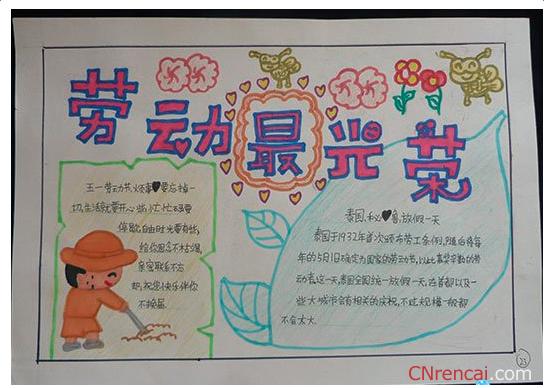 劳动最光荣
五一劳动节,烦事♥要忘掉一
切,生活就要开心些,忙忙碌要
停歇,自由时光要有些,
给你思念不枯竭,
亲密联系不忘
却,祝您快乐伴你
不换届
泰国、秘♥鲁,放假一天
泰国于1932年首次颁布劳工条例,随后将每
年的5月1日确定为国家的劳动节,以此嘉奖辛勤的劳
动者这一天,泰国全国统一放假一天,在首都以及一
些大城市会有相关的庆祝,不过规模一般都
不会太大
23
CNrencai.com